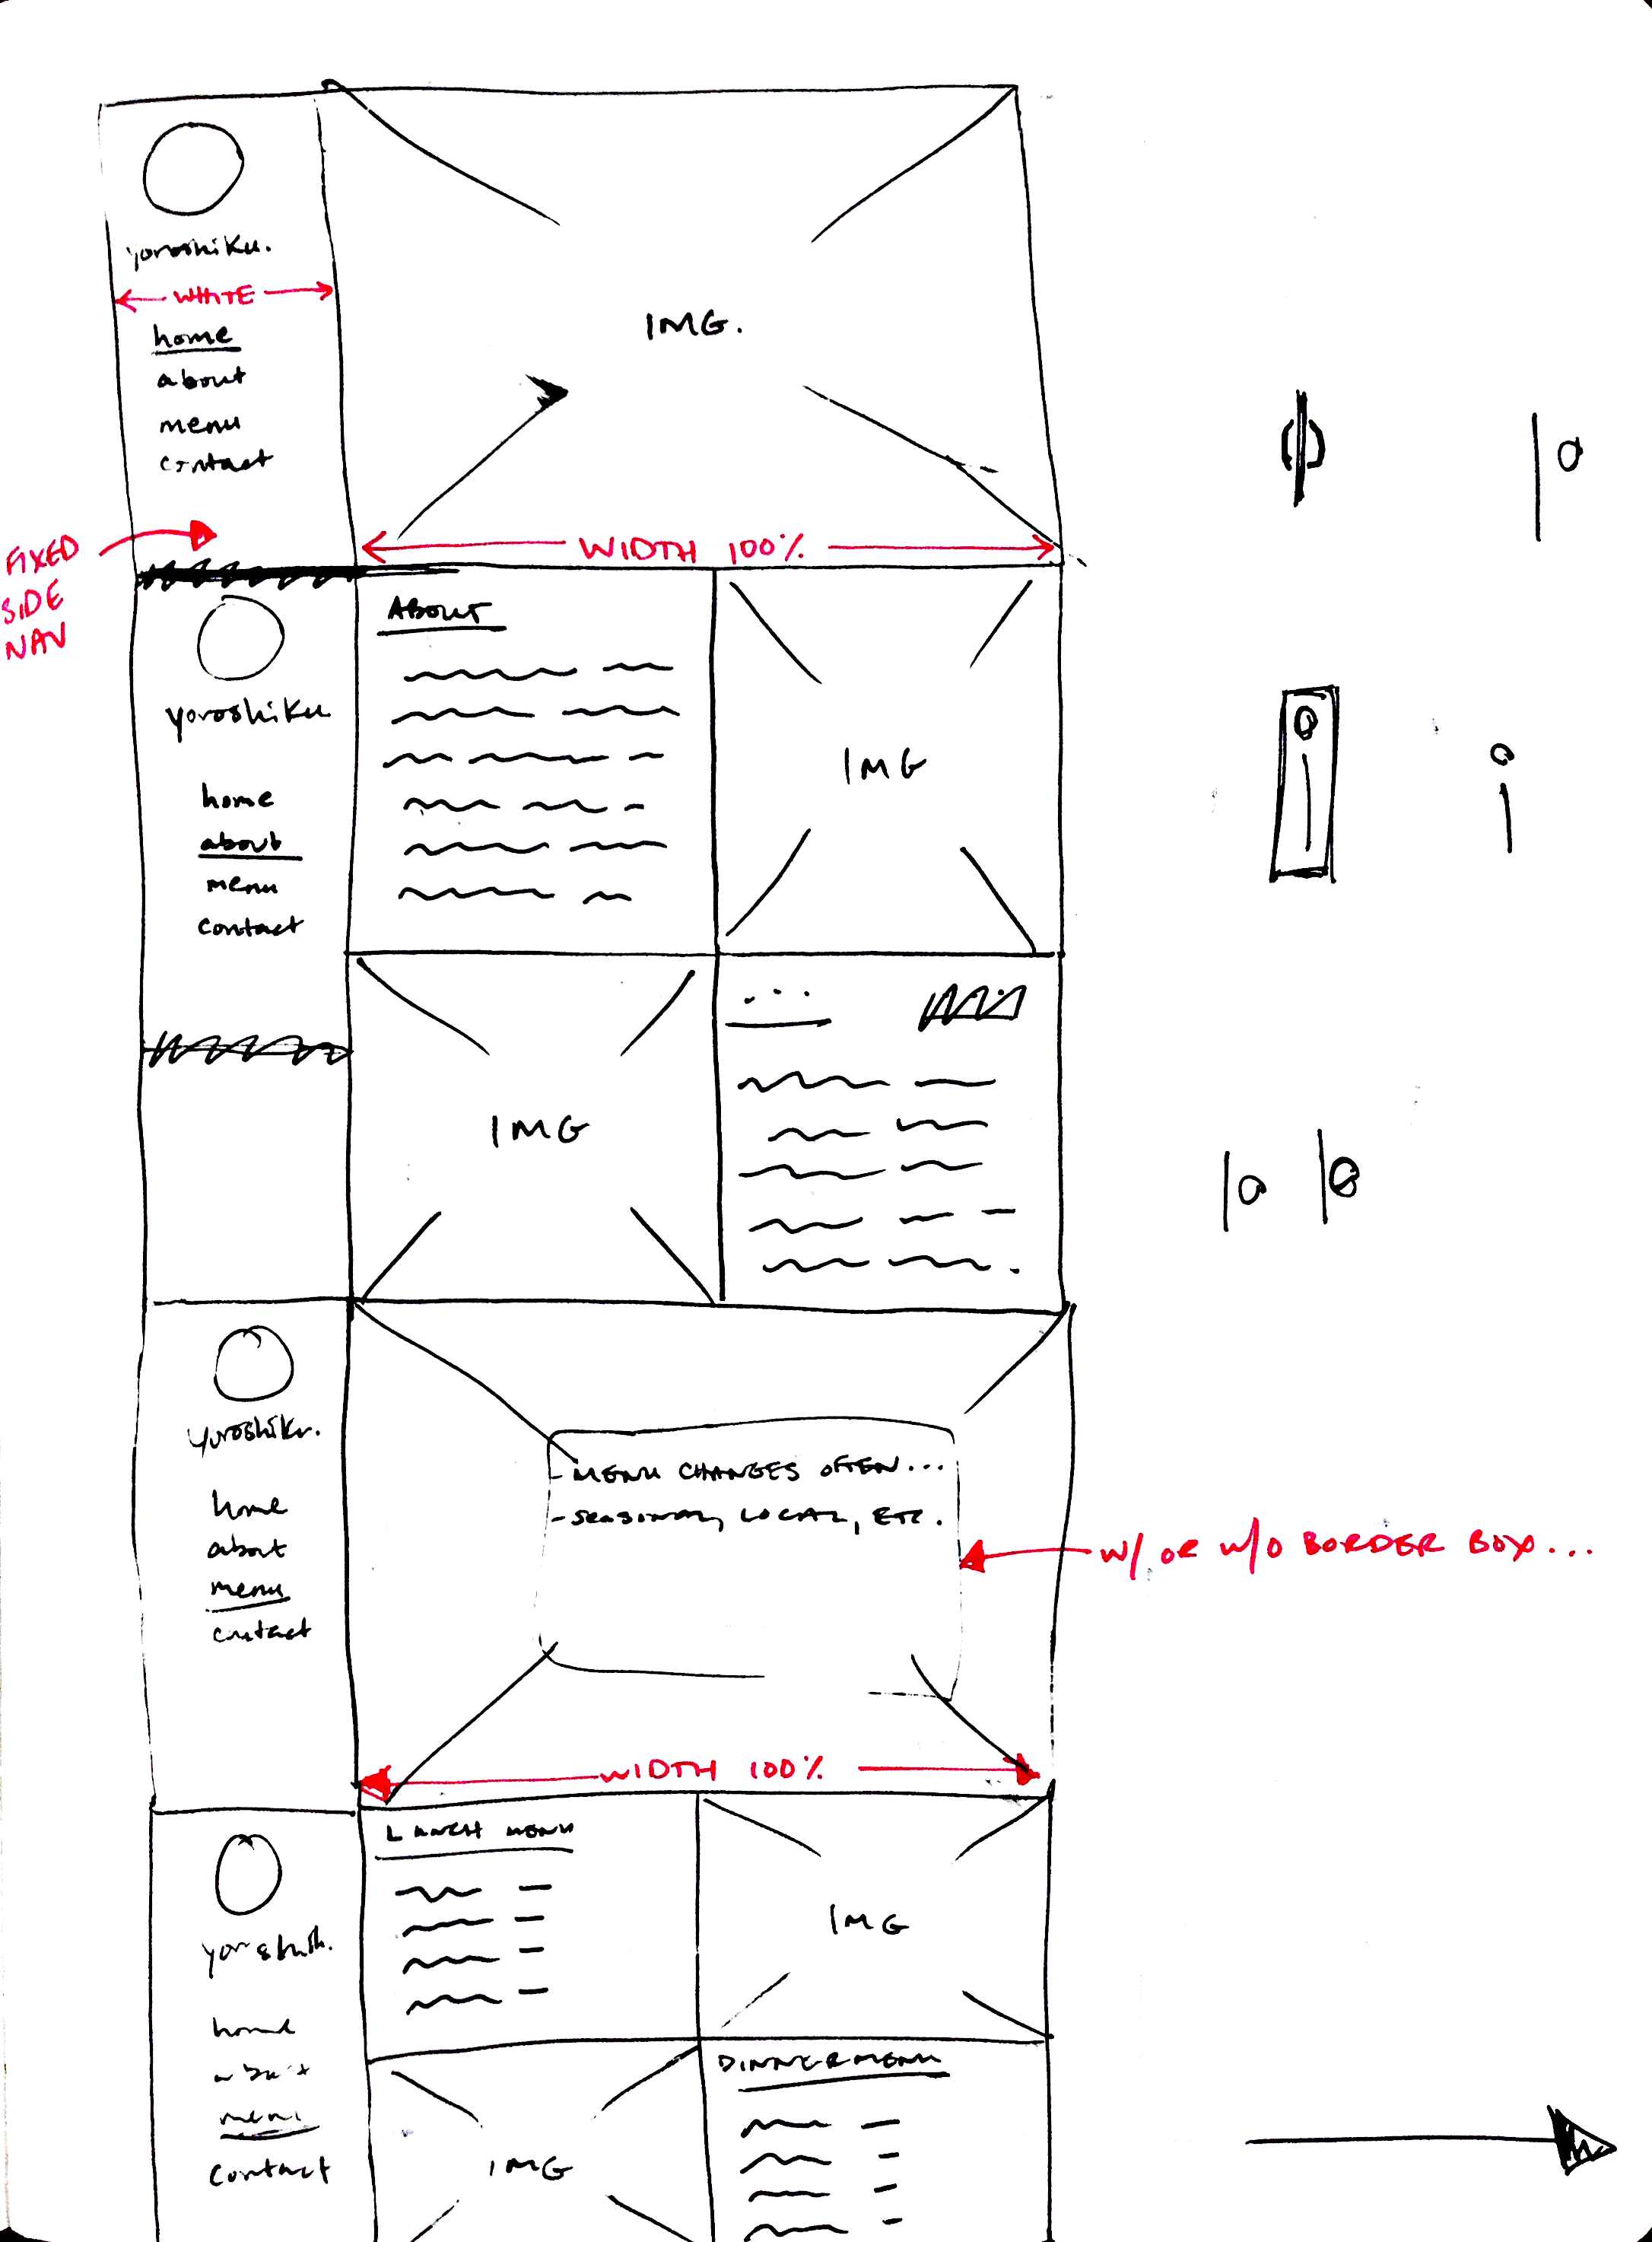 yoroshiku.
WHITE
home
about
menu
contact
IMG.
FIXED
SIDE
NAV
WIDTH 100%
yoroshiku
home
about
menu
contact
ABOUT
IMG
IMG
...
yoroshiku.
home
about
menu
contact
- MENU CHANGES OFTEN...
- SEASONAL, LOCAL, ETC.
W/ OR W/O BORDER BOX...
WIDTH 100%
home
about
menu
contact
LUNCH MENU
IMG
IMG
DINNER MENU